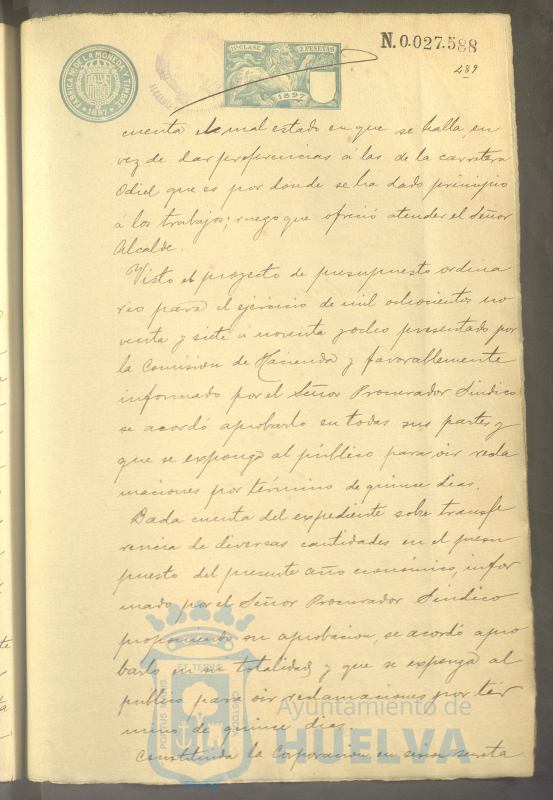 FABRICA N. DE LA MONEDA Y TIMBRE
1897
11ª CLASE 2 PESETAS
1897
N.0.027.588
489
cuenta el mal estado en que se halla, en
vez de dar preferencias a las de la carretera
Odiel que es por donde se ha dado principio
á los trabajos; ruego que ofreció atender el Señor
Alcalde.
Visto el proyecto de presupuesto ordina
rio para el ejercicio de mil ochocientos no
venta y siete á noventa y ocho presentado por
la Comision de Hacienda y favorablemente
informado por el Señor Procurador Síndico
se acordó aprobarlo en todas sus partes y
que se exponga al público para oir recla
maciones por término de quince dias.
Dada cuenta del expediente sobre transfe
rencia de diversas cantidades en el presu
puesto del presente año económico, infor
mado por el Señor Procurador Síndico
proponiendo su aprobacion, se acordó apro
barlo en su totalidad y que se exponga al
público para oir reclamaciones por tér
mino de quince dias.
Constituida la Corporacion en sesion secreta
PORTUS MARIS ET TERRAE CUSTODIA
Ayuntamiento de
HUELVA